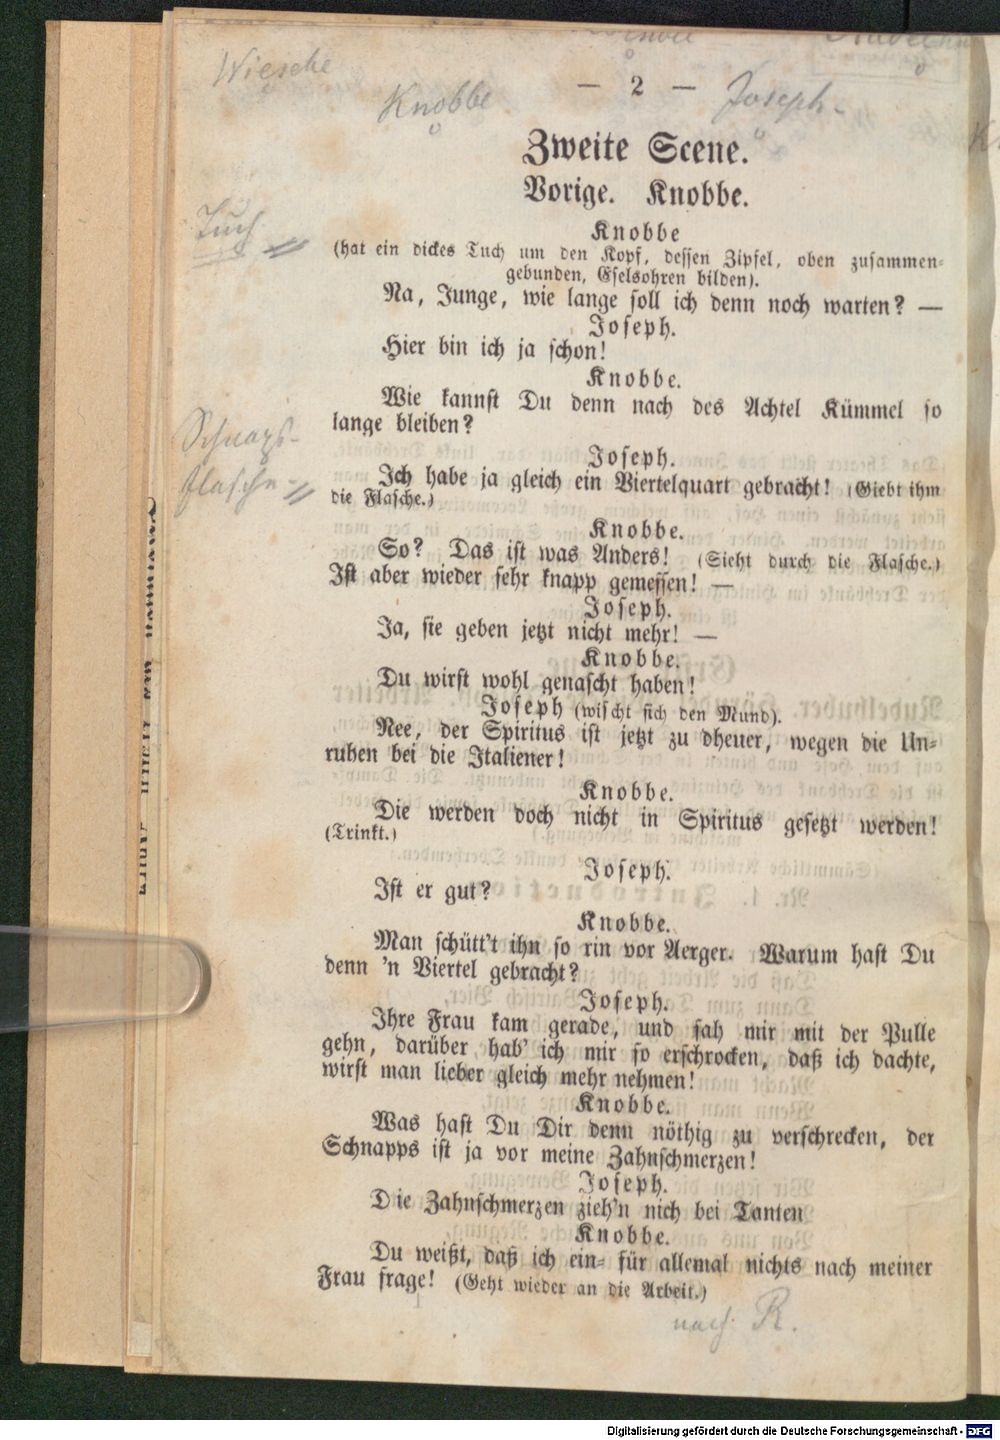 Wiesche
Knobbe
— 2 —
Joseph.
Zweite Scene.
Vorige. Knobbe.
Knobbe
Tuch
(hat ein dickes Tuch um den Kopf, dessen Zipfel, oben zusammen-
gebunden, Eselsohren bilden).
Na, Junge, wie lange soll ich denn noch warten? —
Joseph.
Hier bin ich ja schon!
Knobbe.
Wie kannst Du denn nach des Achtel Kümmel so
lange bleiben?
Schnaps-
flasche
Joseph.
Ich habe ja gleich ein Viertelquart gebracht! (Giebt ihm
die Flasche.)
Knobbe.
So? Das ist was Anders! (Sieht durch die Flasche.)
Ist aber wieder sehr knapp gemessen! —
Joseph.
Ja, sie geben jetzt nicht mehr! —
Knobbe.
Du wirst wohl genascht haben!
Joseph (wischt sich den Mund).
Nee, der Spiritus ist jetzt zu dheuer, wegen die Un-
ruhen bei die Italiener!
Knobbe.
Die werden doch nicht in Spiritus gesetzt werden!
(Trinkt.)
Joseph.
Ist er gut?
Knobbe.
Man schütt't ihn so rin vor Aerger. Warum hast Du
denn 'n Viertel gebracht?
Joseph.
Ihre Frau kam gerade, und sah mir mit der Pulle
gehn, darüber hab' ich mir so erschrocken, daß ich dachte,
wirst man lieber gleich mehr nehmen!
Knobbe.
Was hast Du Dir denn nöthig zu verschrecken, der
Schnapps ist ja vor meine Zahnschmerzen!
Joseph.
Die Zahnschmerzen zieh'n nich bei Tanten
Knobbe.
Du weißt, daß ich ein- für allemal nichts nach meiner
Frau frage! (Geht wieder an die Arbeit.)
nach R.
Digitalisierung gefördert durch die Deutsche Forschungsgemeinschaft - DFG